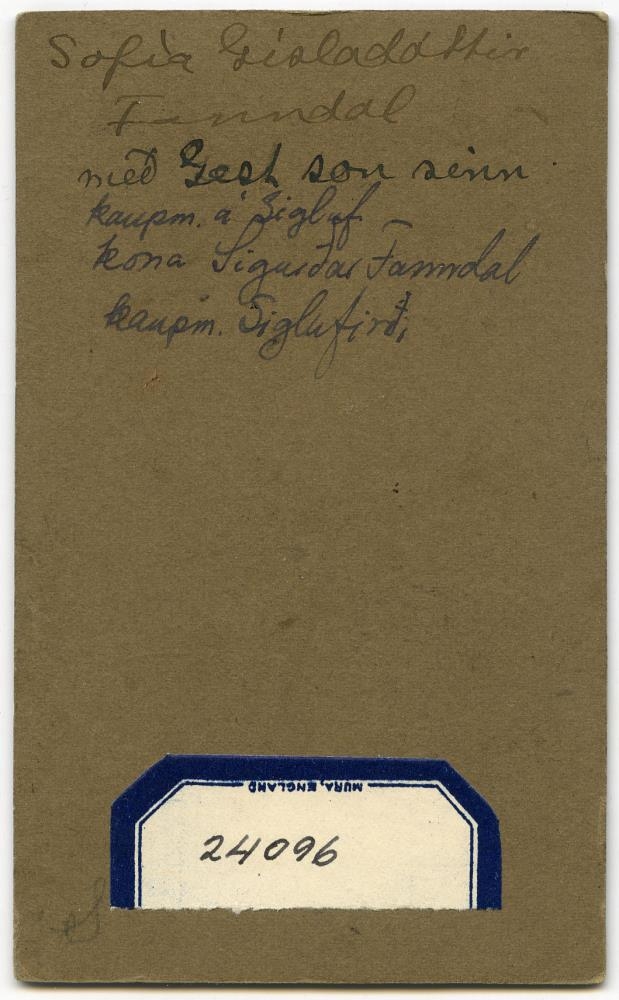 Sofía Gísladóttir
Fanndal
með Gest son sinn.
kaupm. á Sigluf.
kona Sigurðar Fanndal
kaupm. Siglufirði
MURA, ENGLAND
24096